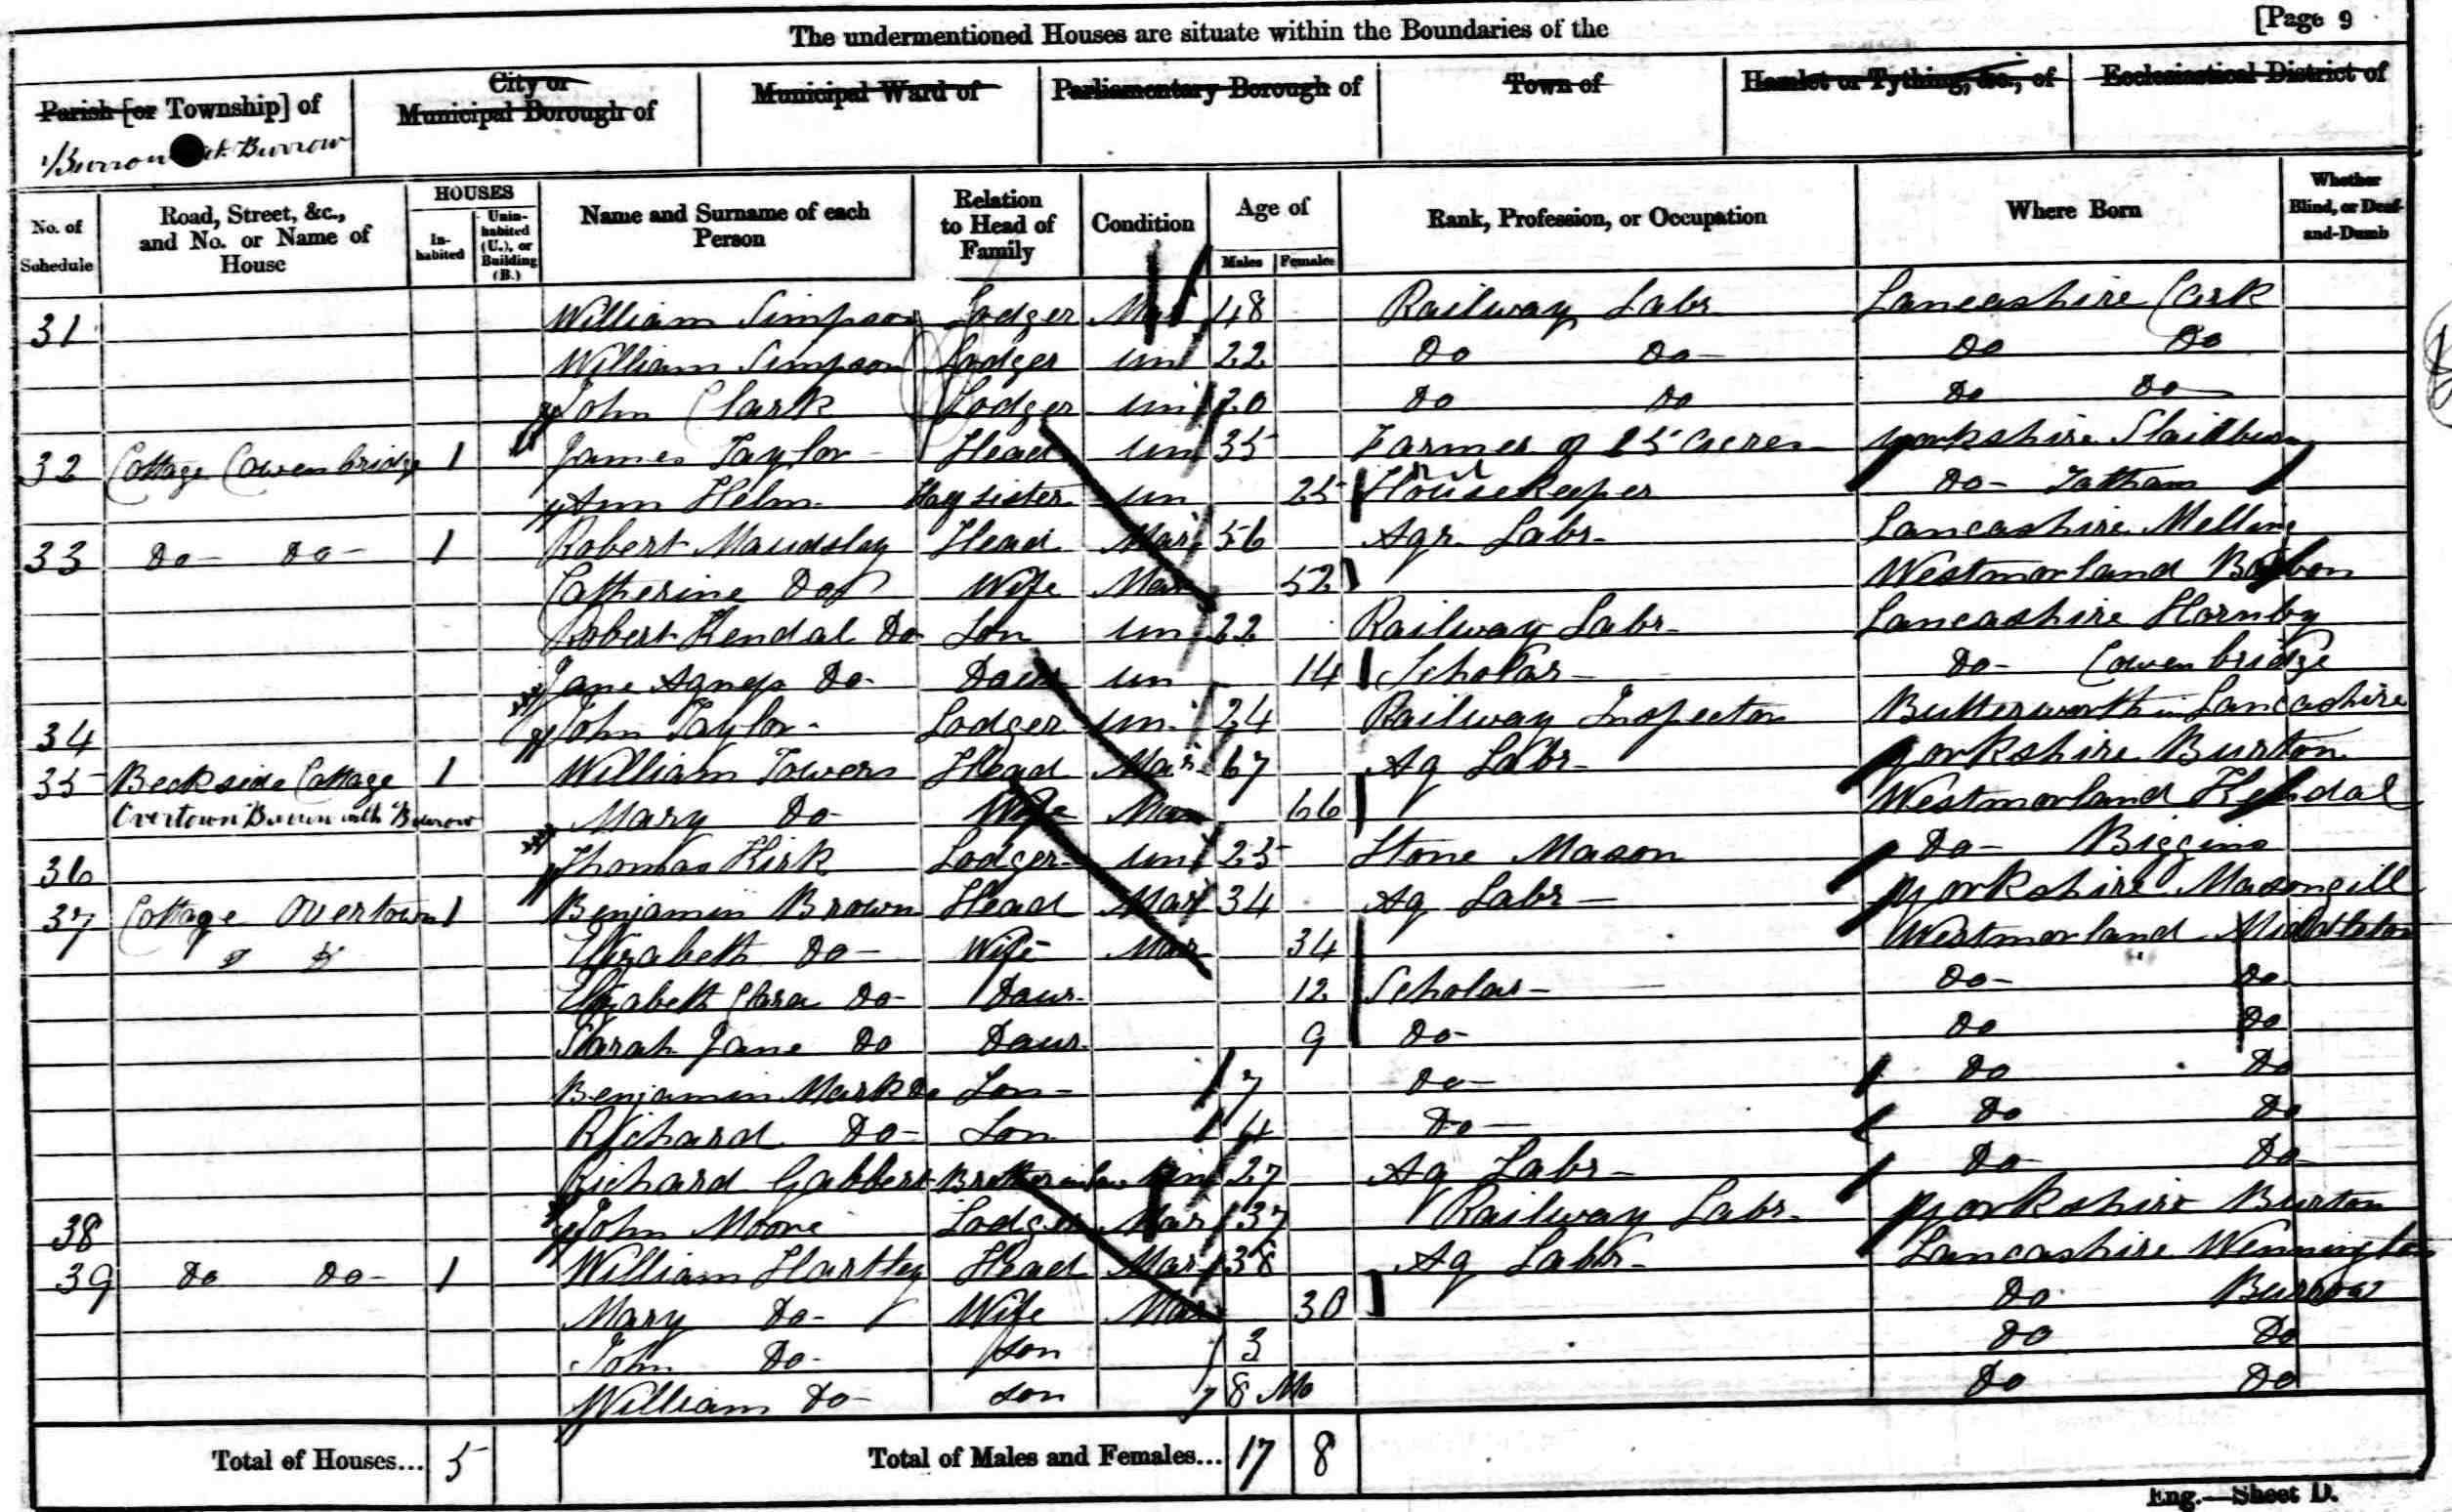 The undermentioned Houses are situate within the Boundaries of the [Page 9
Parish [or Township] of City or Municipal Borough of Municipal Ward of Parliamentary Borough of Town of Hamlet or Tything, &c., of Ecclesiastical District of
Burrow Burrow
No. of Schedule Road, Street, &c., and No. or Name of House HOUSES Inhabited Uninhabited (U.), or Building (B.) Name and Surname of each Person Relation to Head of Family Condition Age of Males Females Rank, Profession, or Occupation Where Born Whether Blind, or Deaf-and-Dumb
31 William Simpson Lodger Mar 48 Railway Labr Lancashire Cark
William Simpson Lodger Un 22 Do Do Do Do
John Clark Lodger Un 20 Do Do Do Do
32 Cottage Cowenbridge 1 James Taylor Head Un 35 Farmer of 25 acres Yorkshire Slaidburn
Ann Helm sister Un 25 Housekeeper Do Tatham
33 Do Do 1 Robert Maudsley Head Mar 56 Agr Labr Lancashire Melling
Catherine Do Wife Mar 52 Westmorland Barbon
Robert Kendal Do Son Un 22 Railway Labr Lancashire Hornby
Jane Agness Do Daur Un 14 Scholar Do Cowenbridge
34 John Taylor Lodger Un 24 Railway Inspector Butterworth in Lancashire
35 Beckside Cottage 1 William Towers Head Mar 67 Ag Labr Yorkshire Burton
Overtown Burrow with Burrow Mary Do Wife Mar 66 Westmorland Kendal
36 Thomas Kirk Lodger Un 25 Stone Mason Do Biggins
37 Cottage Overtown 1 Benjamin Brown Head Mar 34 Ag Labr Yorkshire Masongill
Elizabeth Do Wife Mar 34 Westmorland Middleton
Elizabeth Clara Do Daur 12 Scholar Do Do
Sarah Jane Do Daur 9 Do Do Do
Benjamin Mark Do Son 7 Do Do Do
Richard Do Son 4 Do Do Do
Richard Gabbert Brother in law Un 27 Ag Labr Do Do
38 John Moore Lodger Mar 37 Railway Labr Yorkshire Burton
39 Do Do 1 William Hartley Head Mar 38 Ag Labr Lancashire Wennington
Mary Do Wife Mar 30 Do Burrow
John Do Son 3 Do Do
William Do Son 8 Mo Do Do
Total of Houses... 5 Total of Males and Females... 17 8
Eng.—Sheet D.